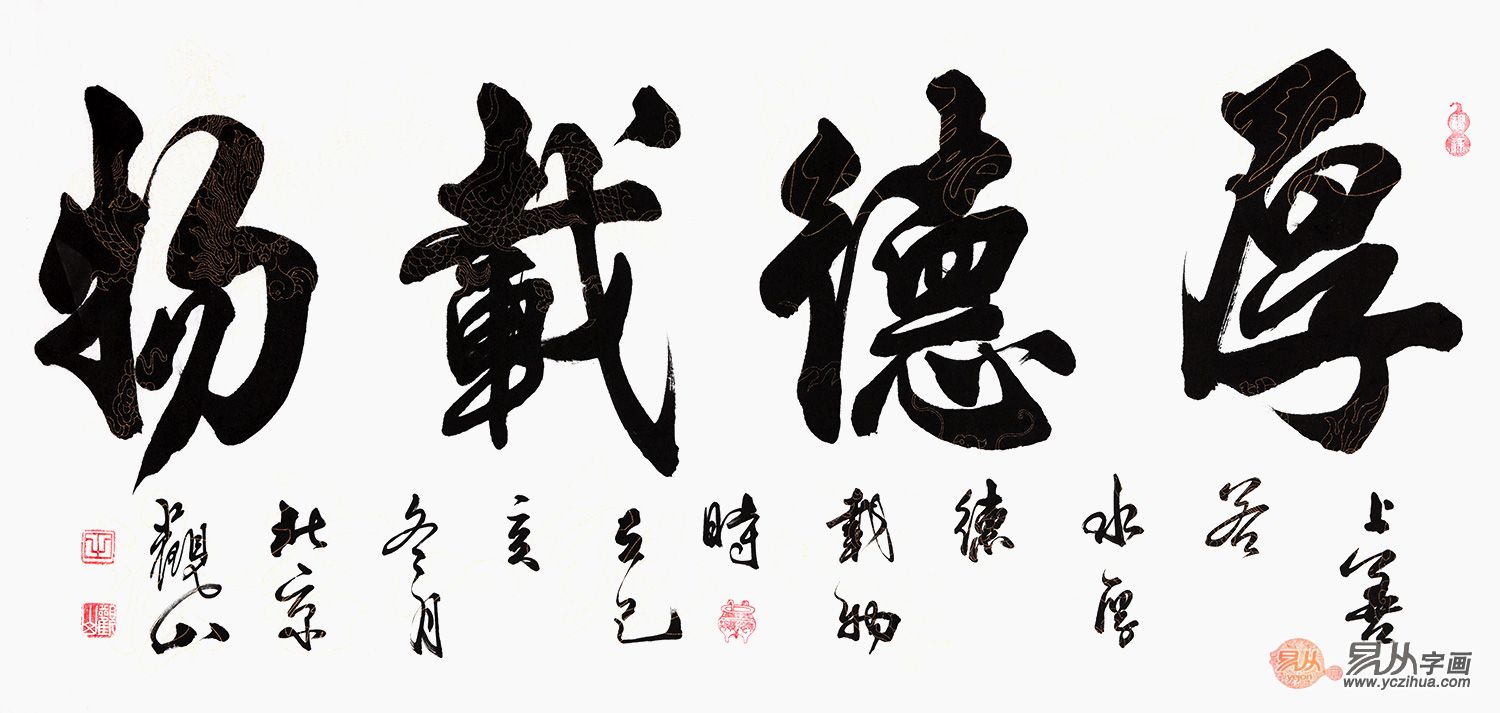 厚德載物
上善
若
水厚
德
載物
時
在己
亥
冬月
北京
觀山
易从字画
www.yczihua.com